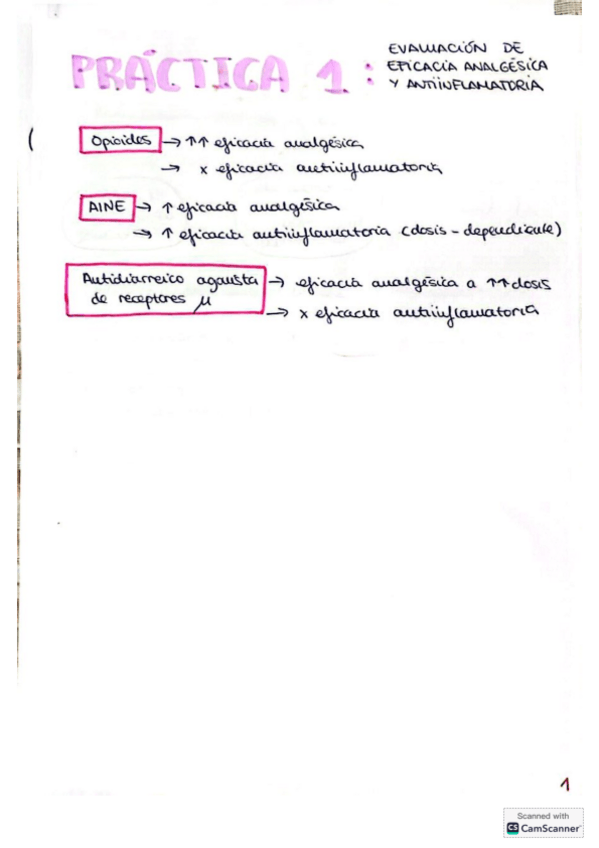 PRÁCTICA 1 : EVALUACIÓN DE
EFICACIA ANALGÉSICA
Y ANTIINFLAMATORIA
Opioides → ↑↑ eficacia analgésica
→ x eficacia antiinflamatoria
AINE → ↑ eficacia analgésica
→ ↑ eficacia antiinflamatoria (dosis-dependiente)
Antidiarreico agonista → eficacia analgésica a ↑↑ dosis
de receptores μ
→ x eficacia antiinflamatoria
1
Scanned with
CS CamScanner